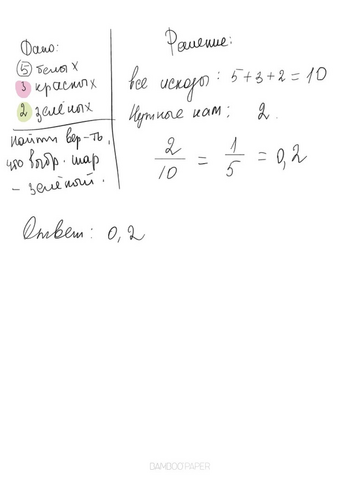 Дано:
5 белых
3 красных
2 зелёных
найти вер-ть,
что выбр. шар
- зелёный.
Решение:
все исходы: 5+3+2=10
Нужные нам: 2.
2/10 = 1/5 = 0,2
Ответ: 0,2
BAMBOO PAPER